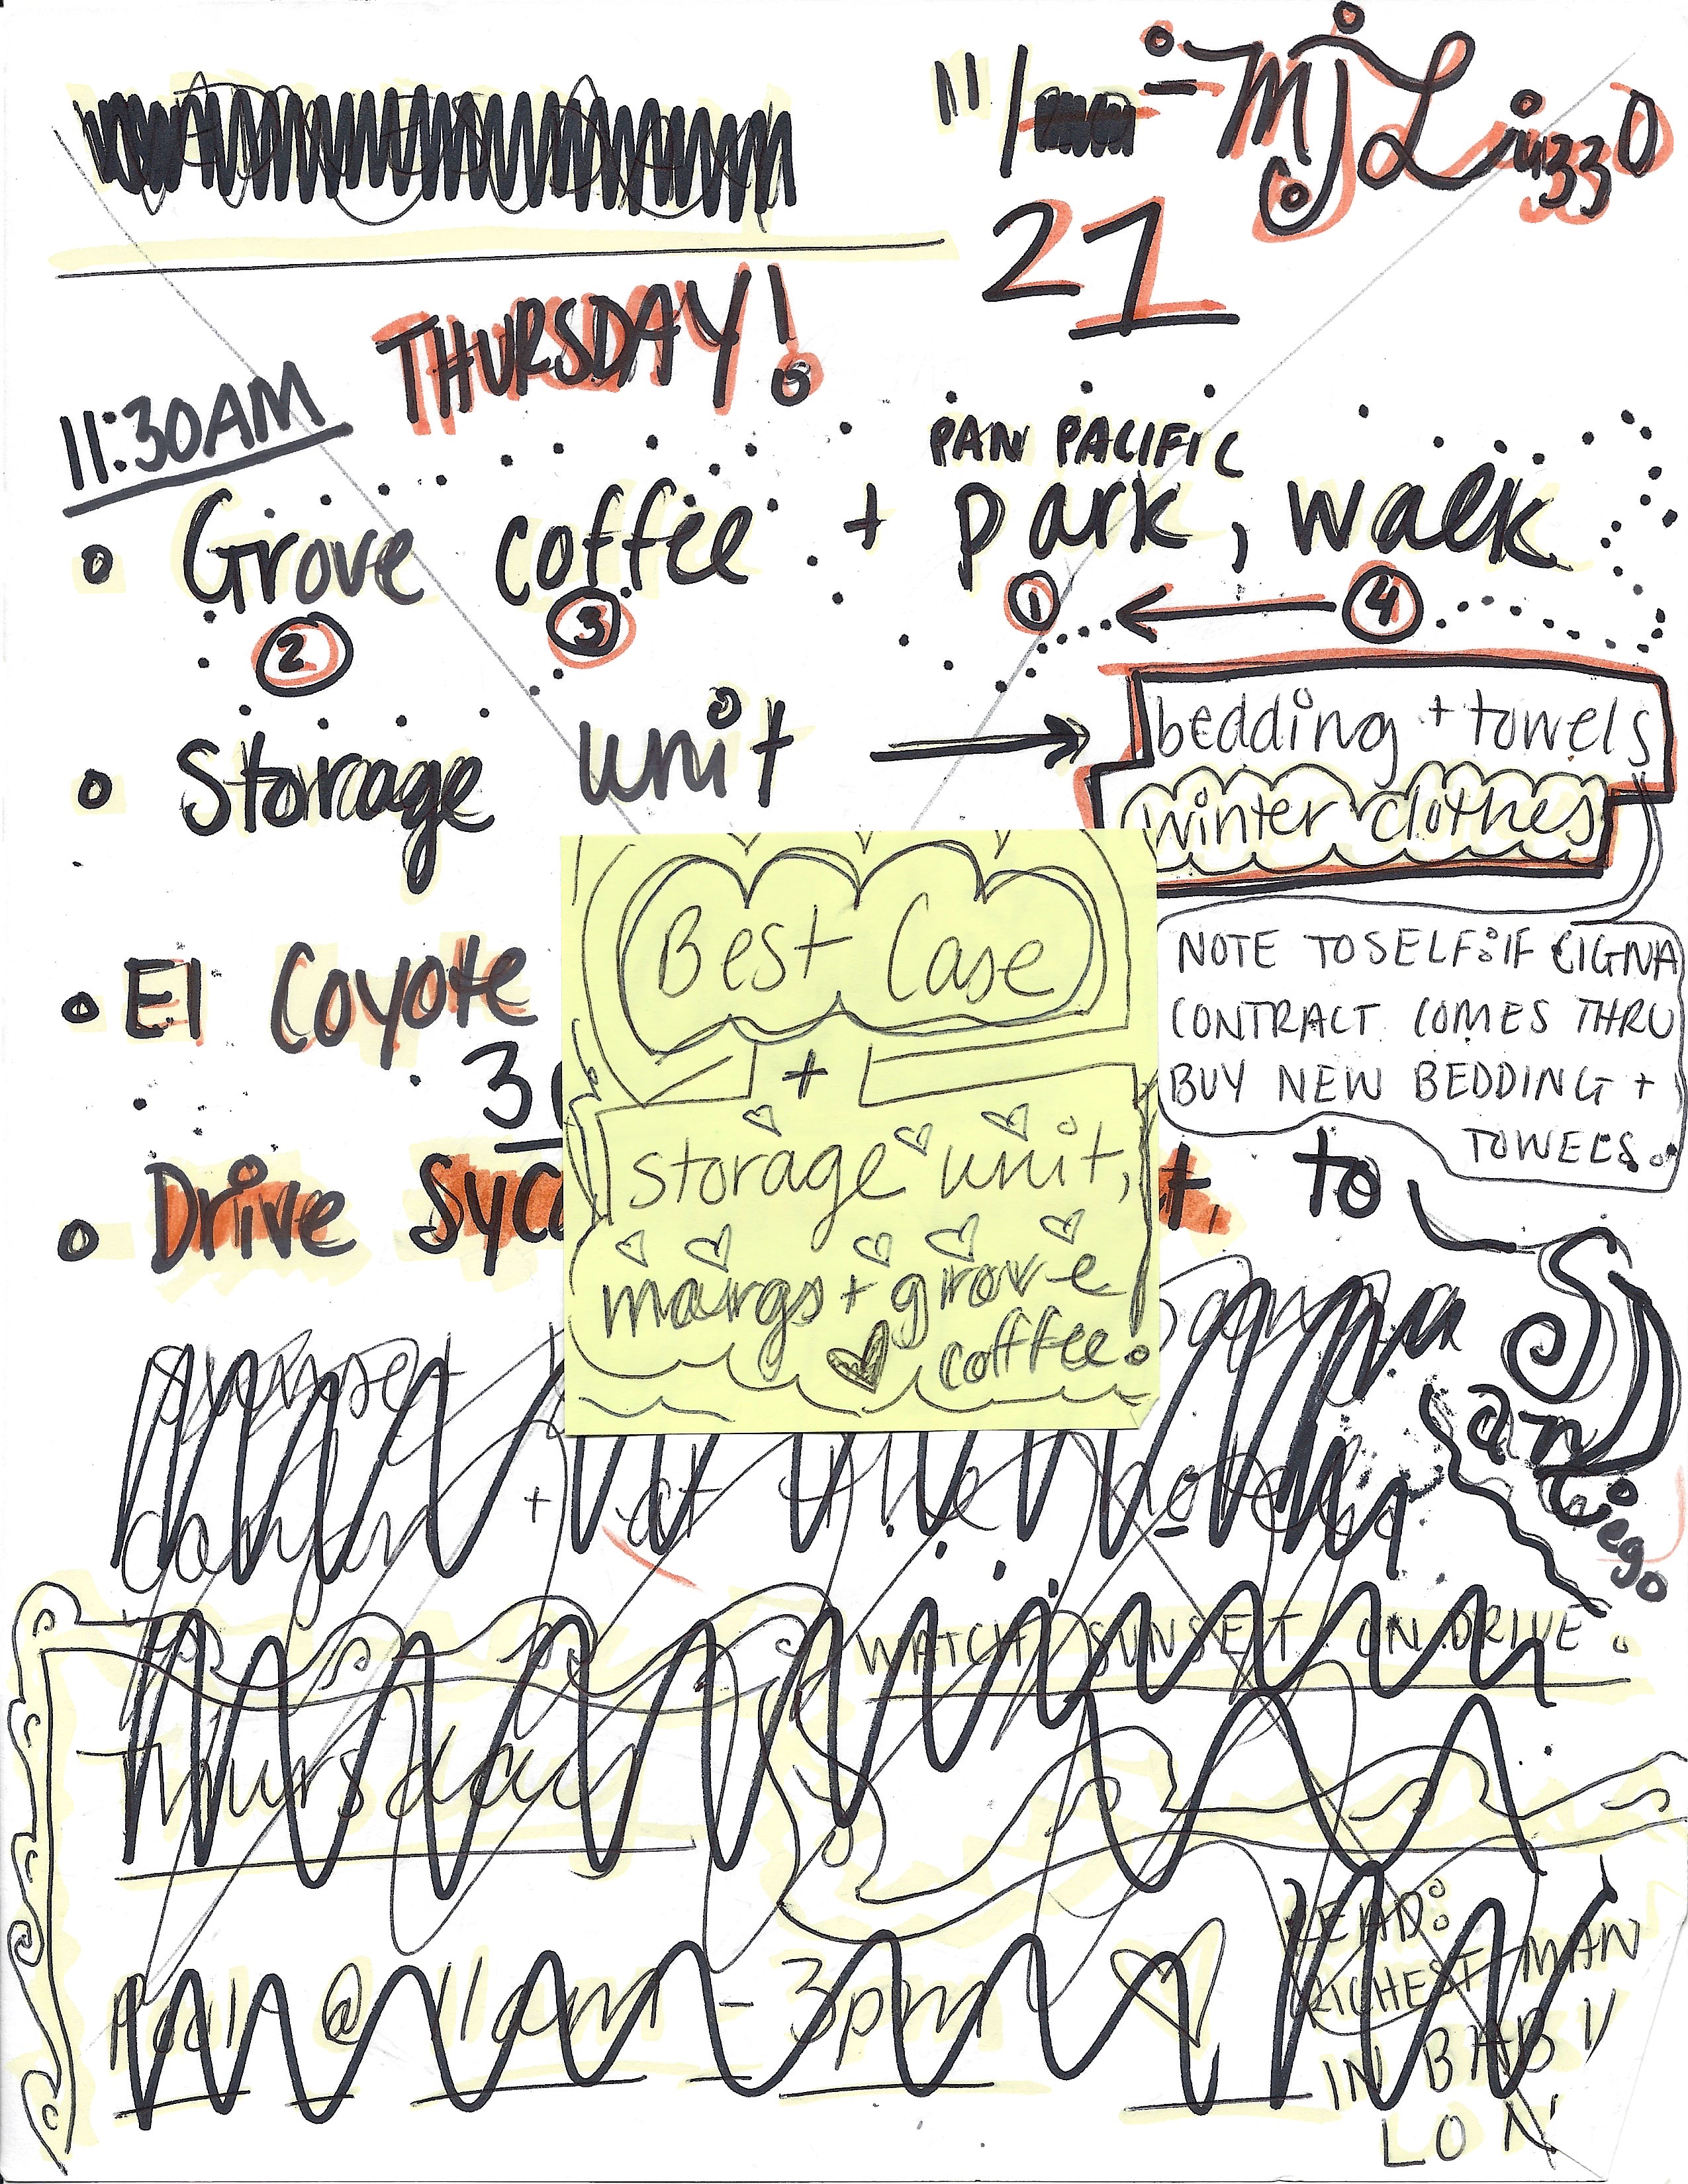 11/ - MJ Liuzzo
21
THURSDAY!
11:30AM
PAN PACIFIC
Grove coffee + park, walk
2 3 1 4
Storage unit
bedding + towels
winter clothes
El Coyote
NOTE TO SELF: IF CIGNA
CONTRACT COMES THRU
BUY NEW BEDDING +
TOWELS.
3
Drive Syc t. to
San Diego
Best Case
+
storage unit,
margs + grove
coffee.
sunset
canyon + at the
WATCH SUNSET ON DRIVE
Thursday
Pool @ 11am - 3pm
READ:
RICHEST MAN
IN BABY
LON!